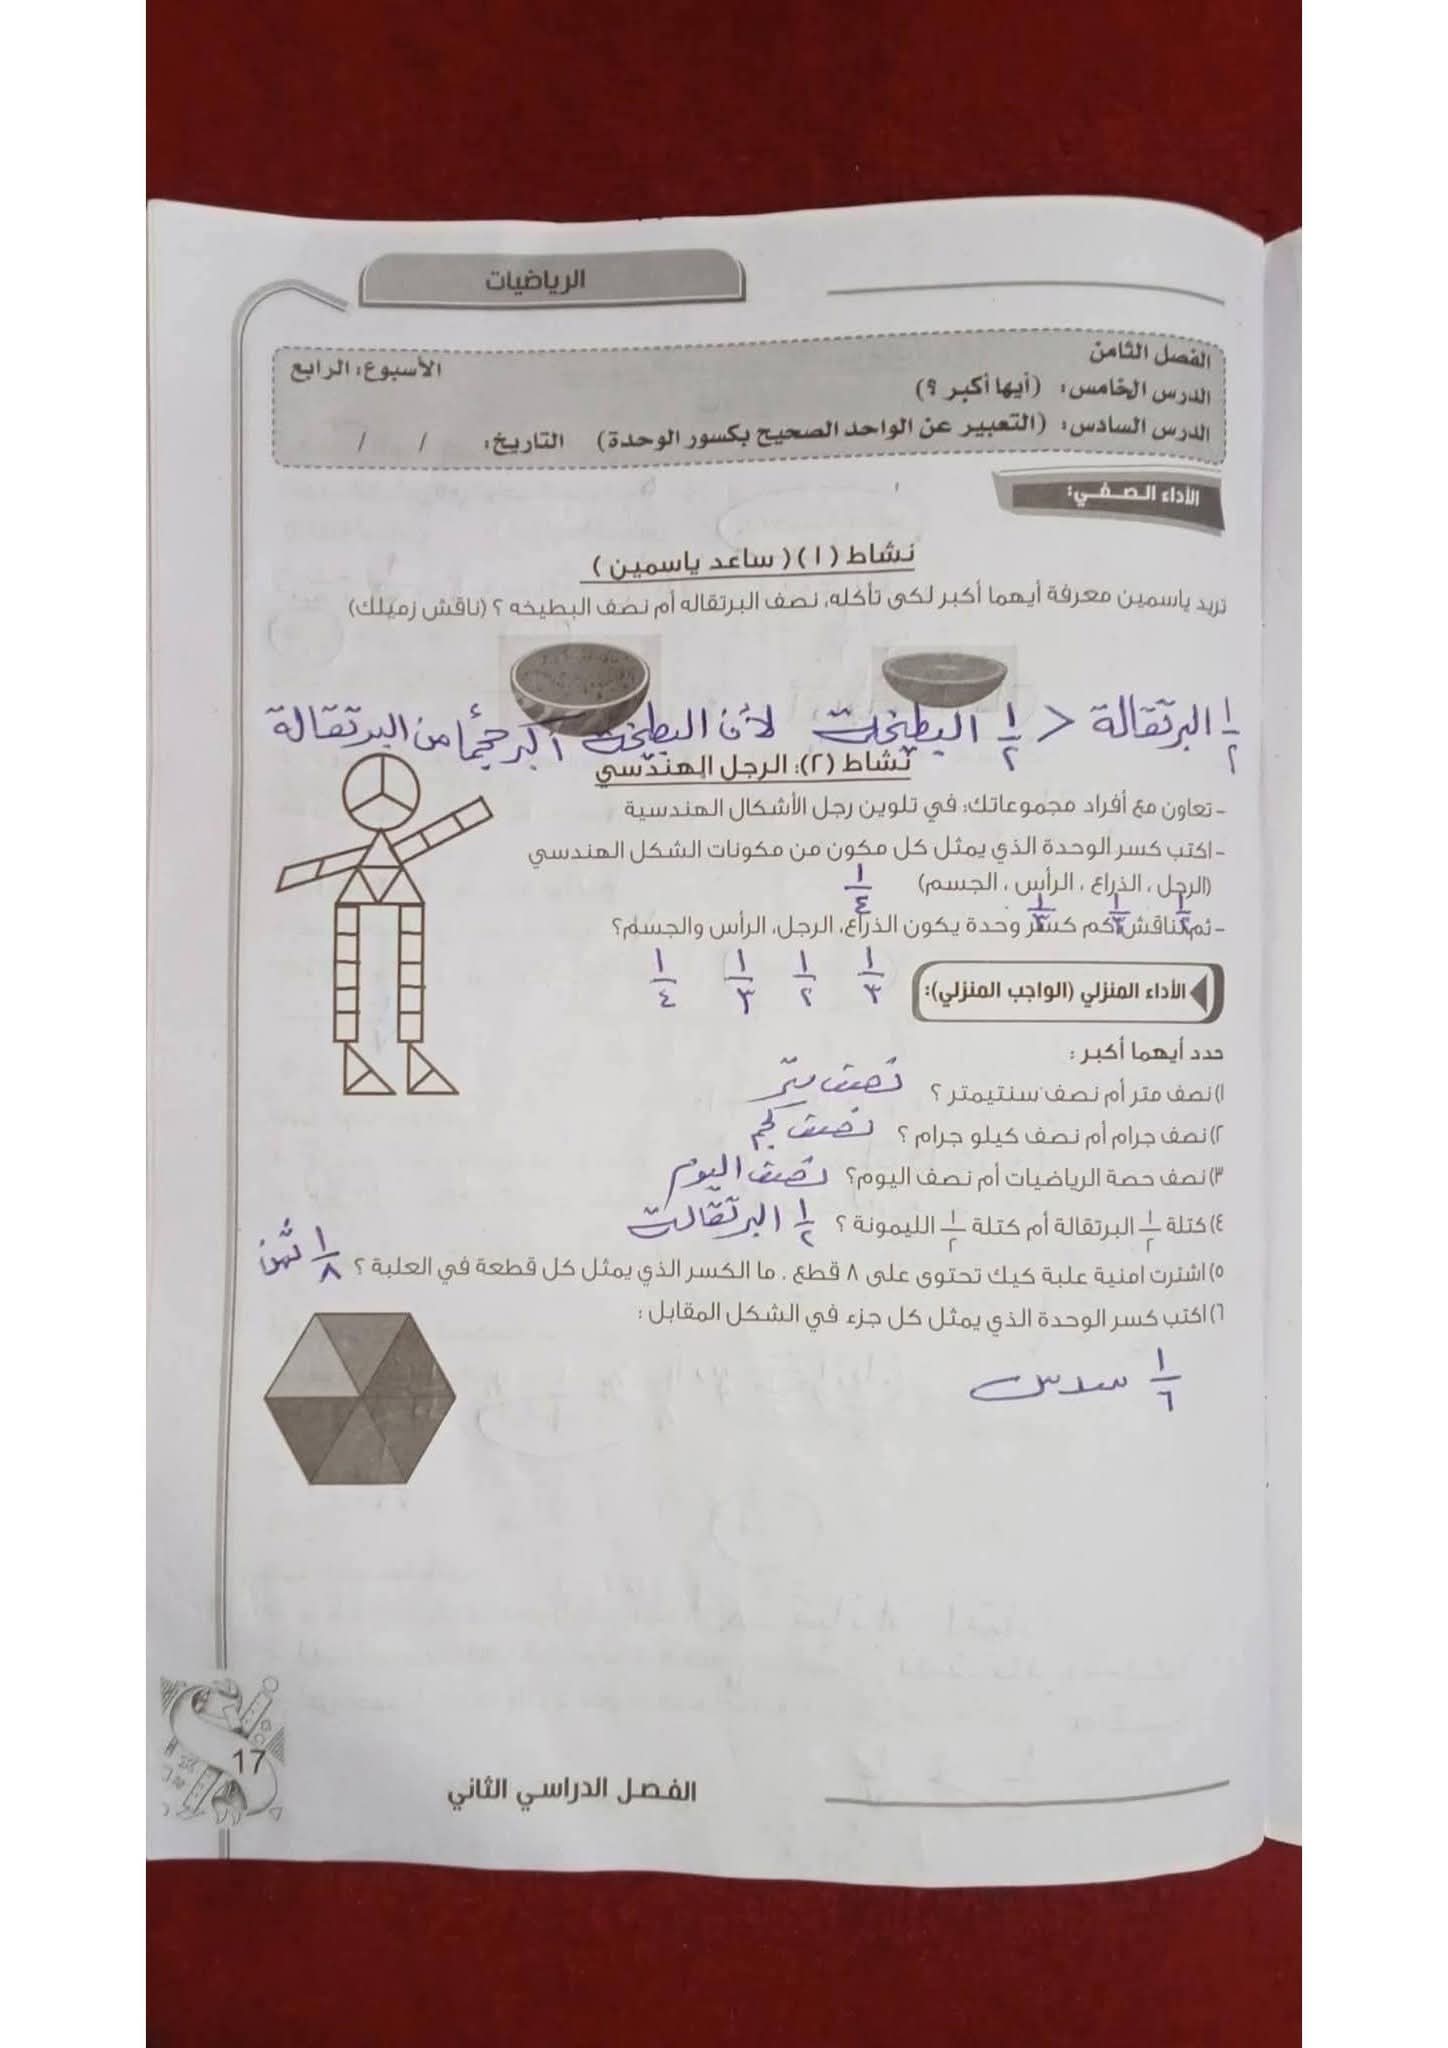 الرياضيات
الفصل الثامن
الأسبوع: الرابع
الدرس الخامس: (أيها أكبر ؟)
الدرس السادس: (التعبير عن الواحد الصحيح بكسور الوحدة) التاريخ: / /
الأداء الصفي:
نشاط (١) ( ساعد ياسمين )
تريد ياسمين معرفة أيهما أكبر لكي تأكله، نصف البرتقاله أم نصف البطيخه ؟ (ناقش زميلك)
١/٢ البرتقالة < ١/٢ البطيخة لأن البطيخة أكبر حجمًا من البرتقالة
نشاط (٢): الرجل الهندسي
- تعاون مع أفراد مجموعاتك: في تلوين رجل الأشكال الهندسية
- اكتب كسر الوحدة الذي يمثل كل مكون من مكونات الشكل الهندسي
(الرجل ، الذراع ، الرأس ، الجسم) ١/٤
١/٢ ١/٣ ١/٣
- ثم ناقش كم كسر وحدة يكون الذراع، الرجل، الرأس والجسم؟
١/٣ ١/٢ ١/٣ ١/٤
الأداء المنزلي (الواجب المنزلي):
حدد أيهما أكبر :
١) نصف متر أم نصف سنتيمتر ؟ نصف متر
٢) نصف جرام أم نصف كيلو جرام ؟ نصف كجم
٣) نصف حصة الرياضيات أم نصف اليوم؟ نصف اليوم
٤) كتلة ١/٢ البرتقالة أم كتلة ١/٢ الليمونة ؟ ١/٢ البرتقالة
٥) اشترت امنية علبة كيك تحتوى على ٨ قطع . ما الكسر الذي يمثل كل قطعة في العلبة ؟ ١/٨ ثمن
٦) اكتب كسر الوحدة الذي يمثل كل جزء في الشكل المقابل :
١/٦ سدس
17
الفصل الدراسي الثاني